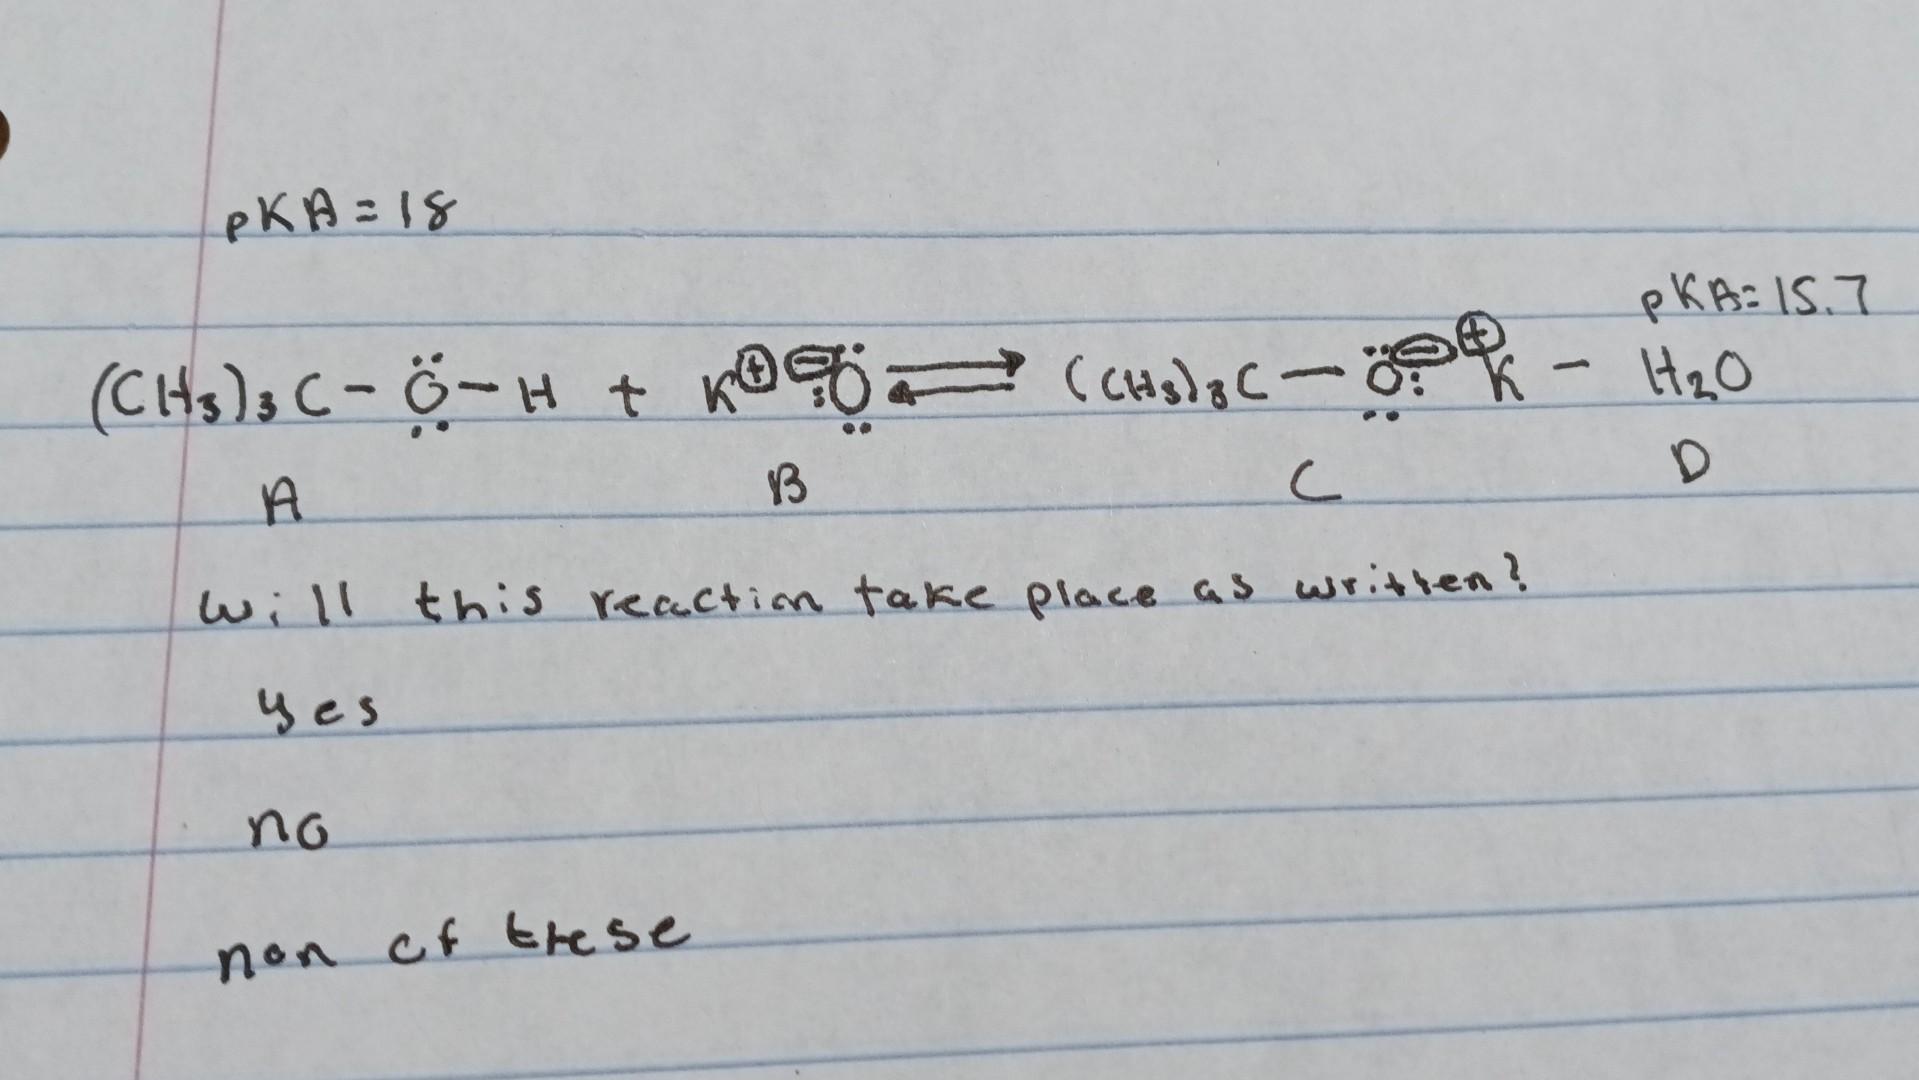 pKA = 18
pKA = 15.7
(CH₃)₃C - Ö - H + K⊕ ⊖:Ö ⇌ (CH₃)₃C — Ö:⊖ ⊕K - H₂O
A B C D
will this reaction take place as written?
yes
no
non of these